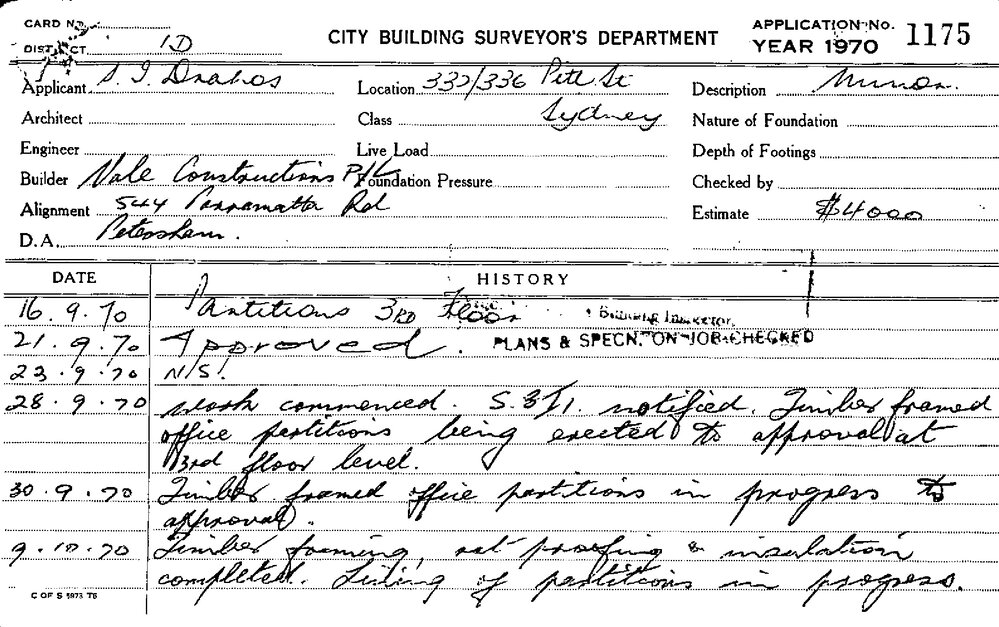 CARD No.
DISTRICT 1D
CITY BUILDING SURVEYOR'S DEPARTMENT
APPLICATION No. 1175
YEAR 1970
Applicant S. J. Drakos
Location 332/336 Pitt St
Description Minor.
Architect
Class Sydney
Nature of Foundation
Engineer
Live Load
Depth of Footings
Builder Vale Constructions P/L
Foundation Pressure
Checked by
Alignment 544 Parramatta Rd
Estimate $4000
D.A. Petersham.
DATE HISTORY
16.9.70 Partitions 3RD Floor
Building Inspector.
21.9.70 Approved. PLANS & SPECN. ON JOB CHECKED
23.9.70 N/S!
28.9.70 Work commenced. S.B.I. notified. Timber framed
office partitions being erected to approval at
3rd floor level.
30.9.70 Timber framed office partitions in progress to
approval.
9.10.70 Timber framing, rat proofing & insulation
completed. Lining of partitions in progress.
C OF S 5973 TS